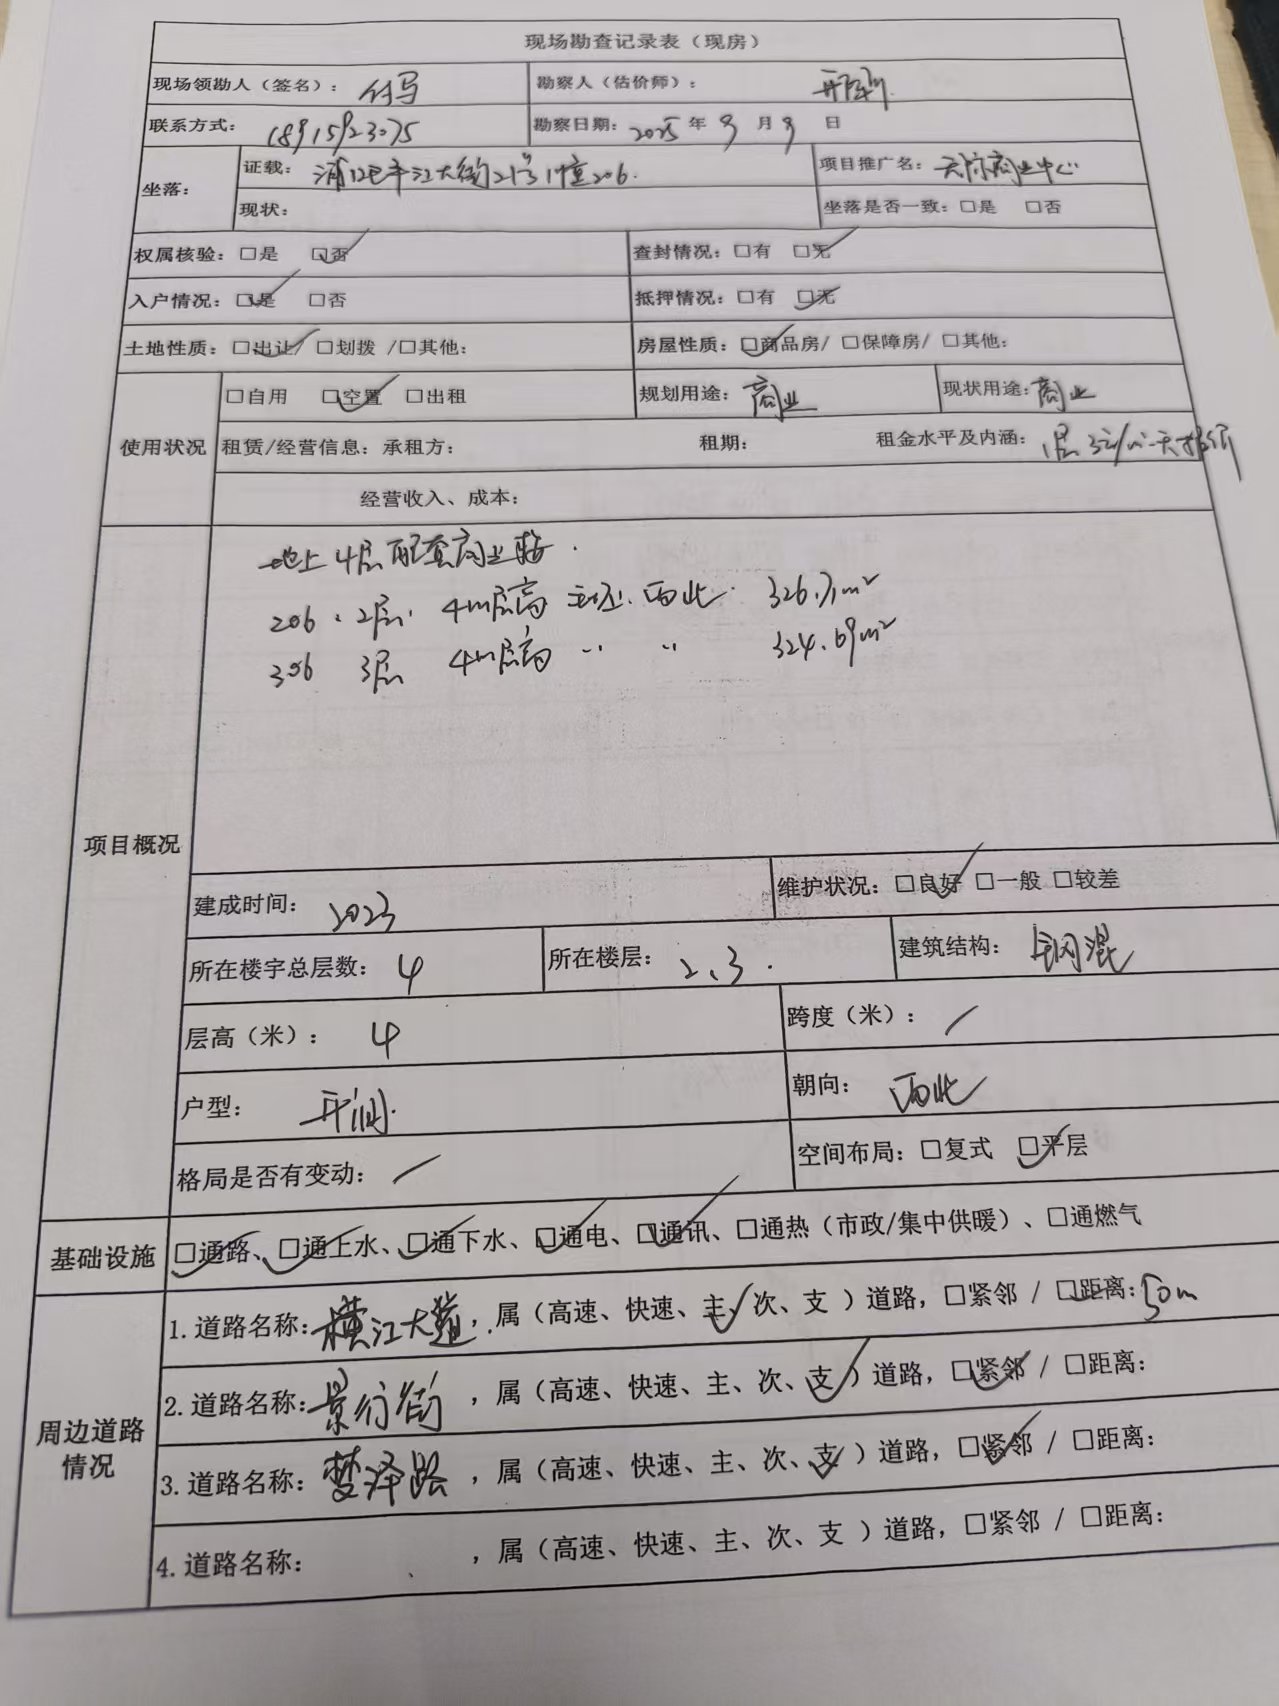 现场勘查记录表（现房）
现场领勘人（签名）： 勘察人（估价师）：
联系方式： 勘察日期：2025年9月9日
坐落： 证载：浦口区 江大街21号1幢206. 项目推广名： 商业中心
现状： 坐落是否一致：□是 □否
权属核验：□是 ☑否 查封情况：□有 ☑无
入户情况：☑是 □否 抵押情况：□有 ☑无
土地性质：☑出让/ □划拨 /□其他： 房屋性质：☑商品房/ □保障房/ □其他：
使用状况 □自用 ☑空置 □出租 规划用途：商业 现状用途：商业
租赁/经营信息：承租方： 租期： 租金水平及内涵：1层 3元/㎡·天
经营收入、成本：
项目概况
地上4层配套商业楼.
206. 2层. 4m层高 西北. 326.71m²
306 3层 4m层高 〃 〃 324.69m²
建成时间：2023 维护状况：☑良好 □一般 □较差
所在楼宇总层数：4 所在楼层：2、3. 建筑结构：钢混
层高（米）：4 跨度（米）：/
户型：开间. 朝向：西北
格局是否有变动：/ 空间布局：□复式 ☑平层
基础设施 ☑通路、☑通上水、☑通下水、☑通电、☑通讯、□通热（市政/集中供暖）、□通燃气
周边道路情况
1.道路名称：横江大道，属（高速、快速、主✓、次、支）道路，□紧邻 / ☑距离：50m
2.道路名称：景行街，属（高速、快速、主、次、支✓）道路，☑紧邻 / □距离：
3.道路名称：梦泽路，属（高速、快速、主、次、支✓）道路，☑紧邻 / □距离：
4.道路名称： ，属（高速、快速、主、次、支）道路，□紧邻 / □距离：